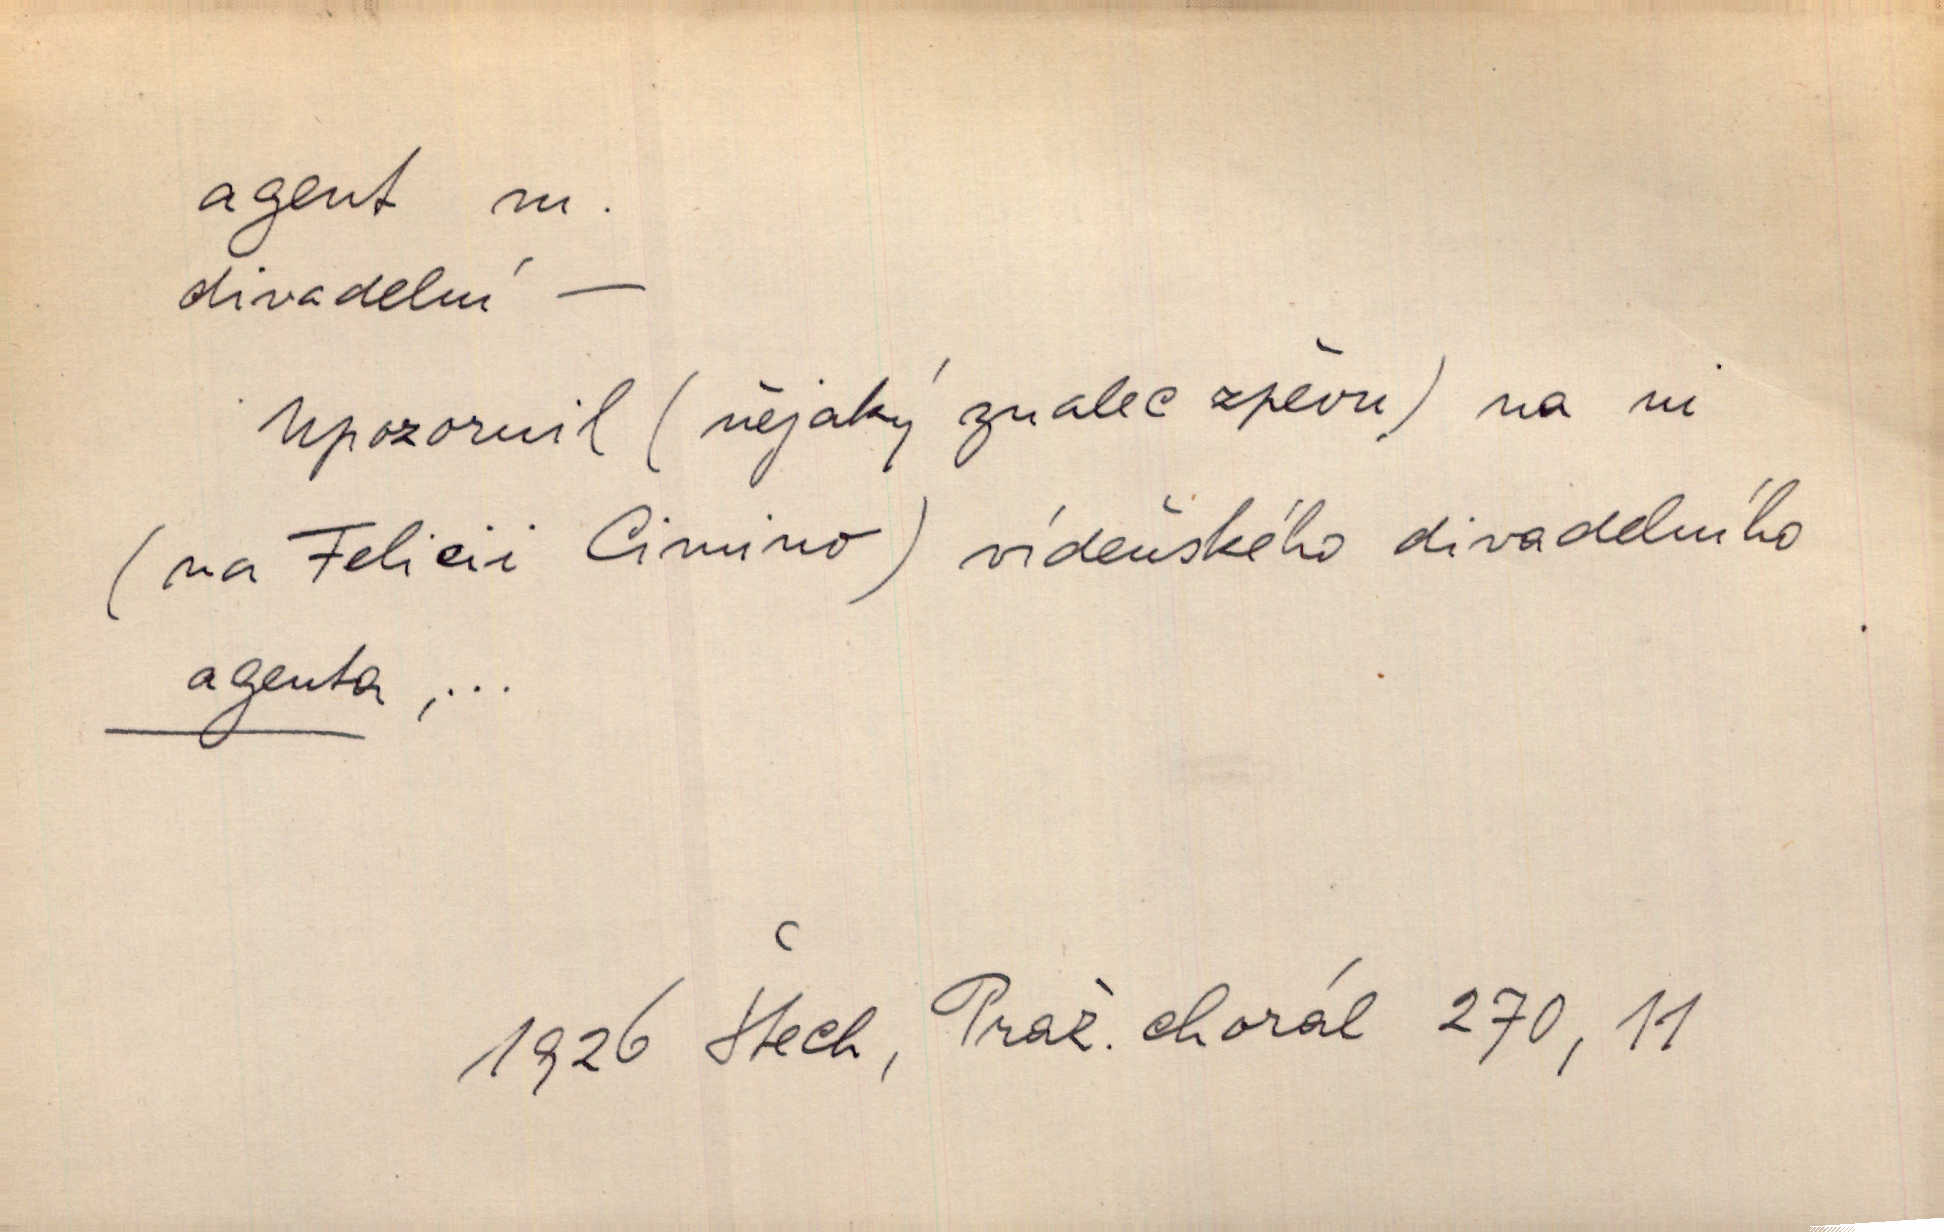 agent m.
divadelní —
Upozornil (nějaký znalec zpěvu) na ni
(na Felicii Cimino) vídeňského divadelního
agenta, ...
1926 Štech, Praž. chorál 270, 11